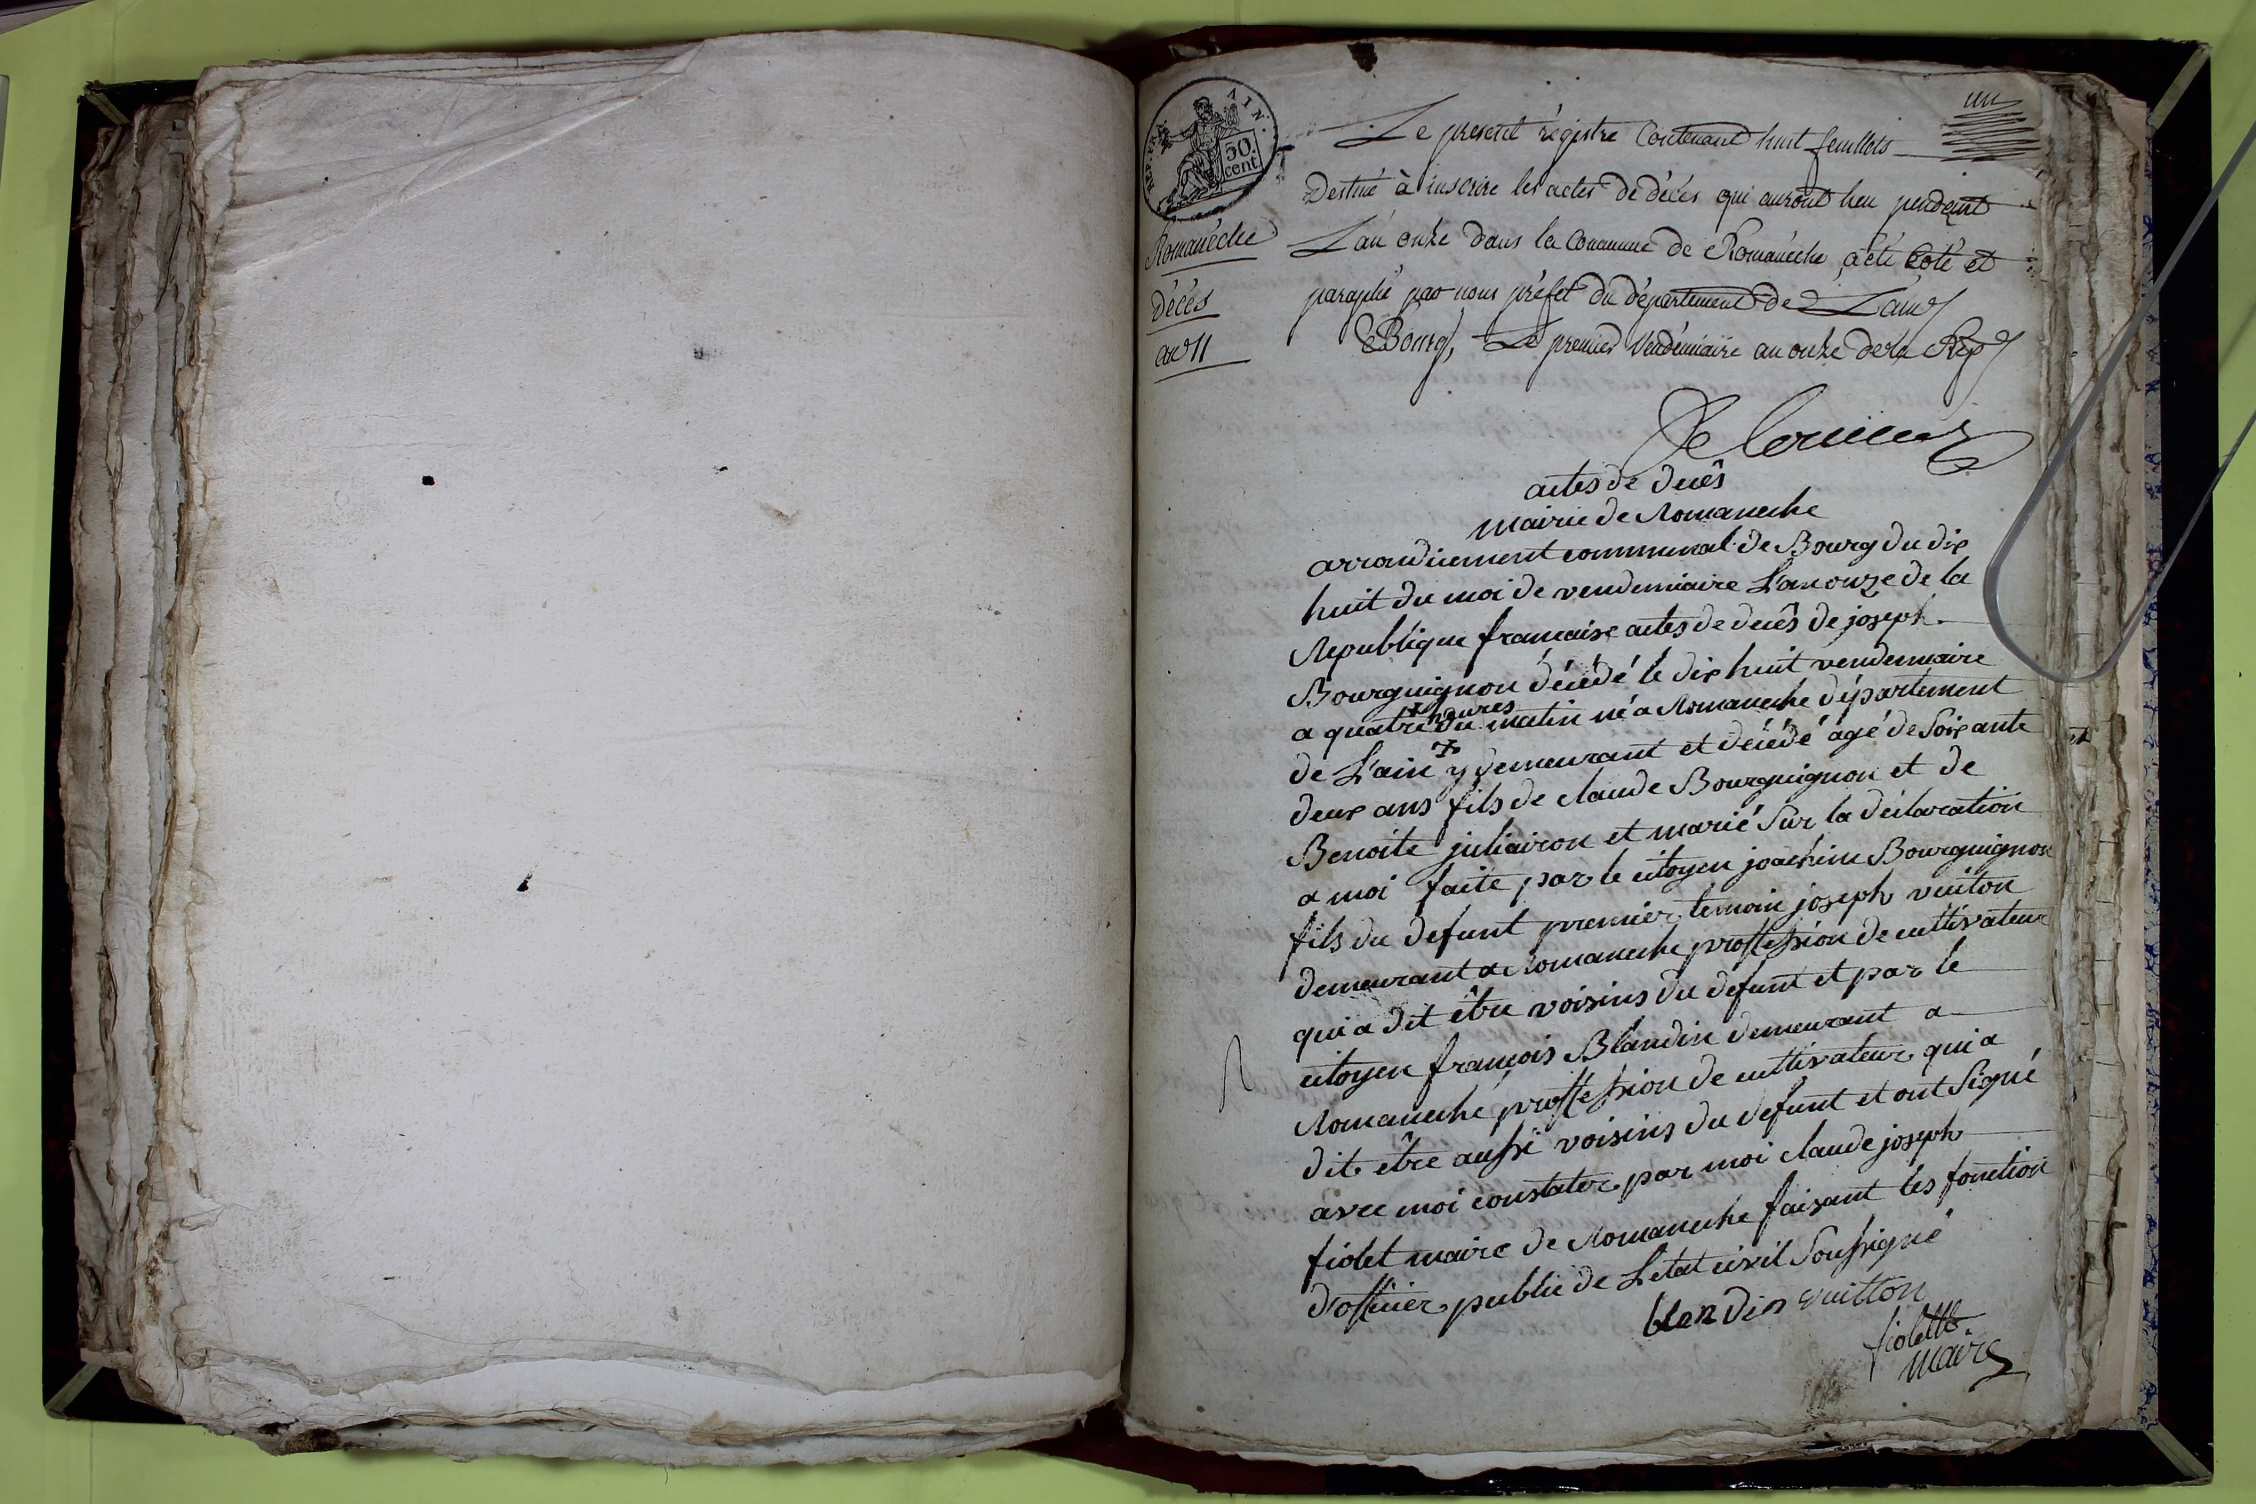 un
REP. FRA. AIN.
50.
cent.
Romanéche
Décès
an 11
Le present régistre Contenant huit feuillets
Destiné à inscrire les actes de décès qui auront lieu pendant
L'an onze dans la Commune de Romanéche, a été Coté et
paraphé par nous préfet du département de L'ain
Bourg, Le premier Vendémiaire an onze de la Rep
actes de decês
mairie de Romaneche
arrondicement communal de Bourg du dix
huit du moi de vendemiaire L'an onze de la
Republique francaise actes de decês de joseph
Bourguignon décédé le dix huit vendemiaire
+ heures
a quatre du matin né a Romaneche département
de L'ain + y demeurant et décédé âgé de Soixante
deux ans fils de claude Bourguignon et de
Benoite juliairon et marié Sur la déclaration
a moi faite par le citoyen joachim Bourguignon
fils du defunt premier temoin joseph vuiton
demeurant a Romaneche proffession de cultivateur
qui a dit être voisins du défunt et par le
citoyen francois Blandin demeurant a
Romaneche proffession de cultivateur qui a
dit être aussi voisins du defunt et ont Signé
avec moi constater par moi claude joseph
fiolet maire de Romaneche faisant les fonction
d'officier public de Letat civil Soussigné
blandin vuitton
fiolette
maire